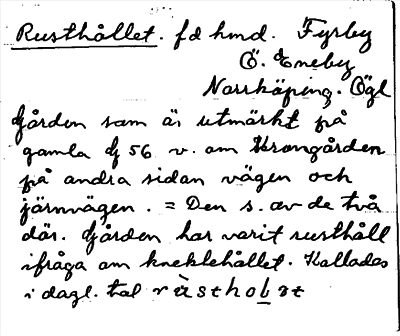 Rusthållet. fd hmd. Fyrby
Ö. Eneby
Norrköping. Ögl
Gården som är utmärkt på
gamla G 56 v. om Krongården
på andra sidan vägen och
järnvägen. = Den s. av de två
där. Gården har varit rusthåll
ifråga om kneklehållet. Kallades
i dagl. tal